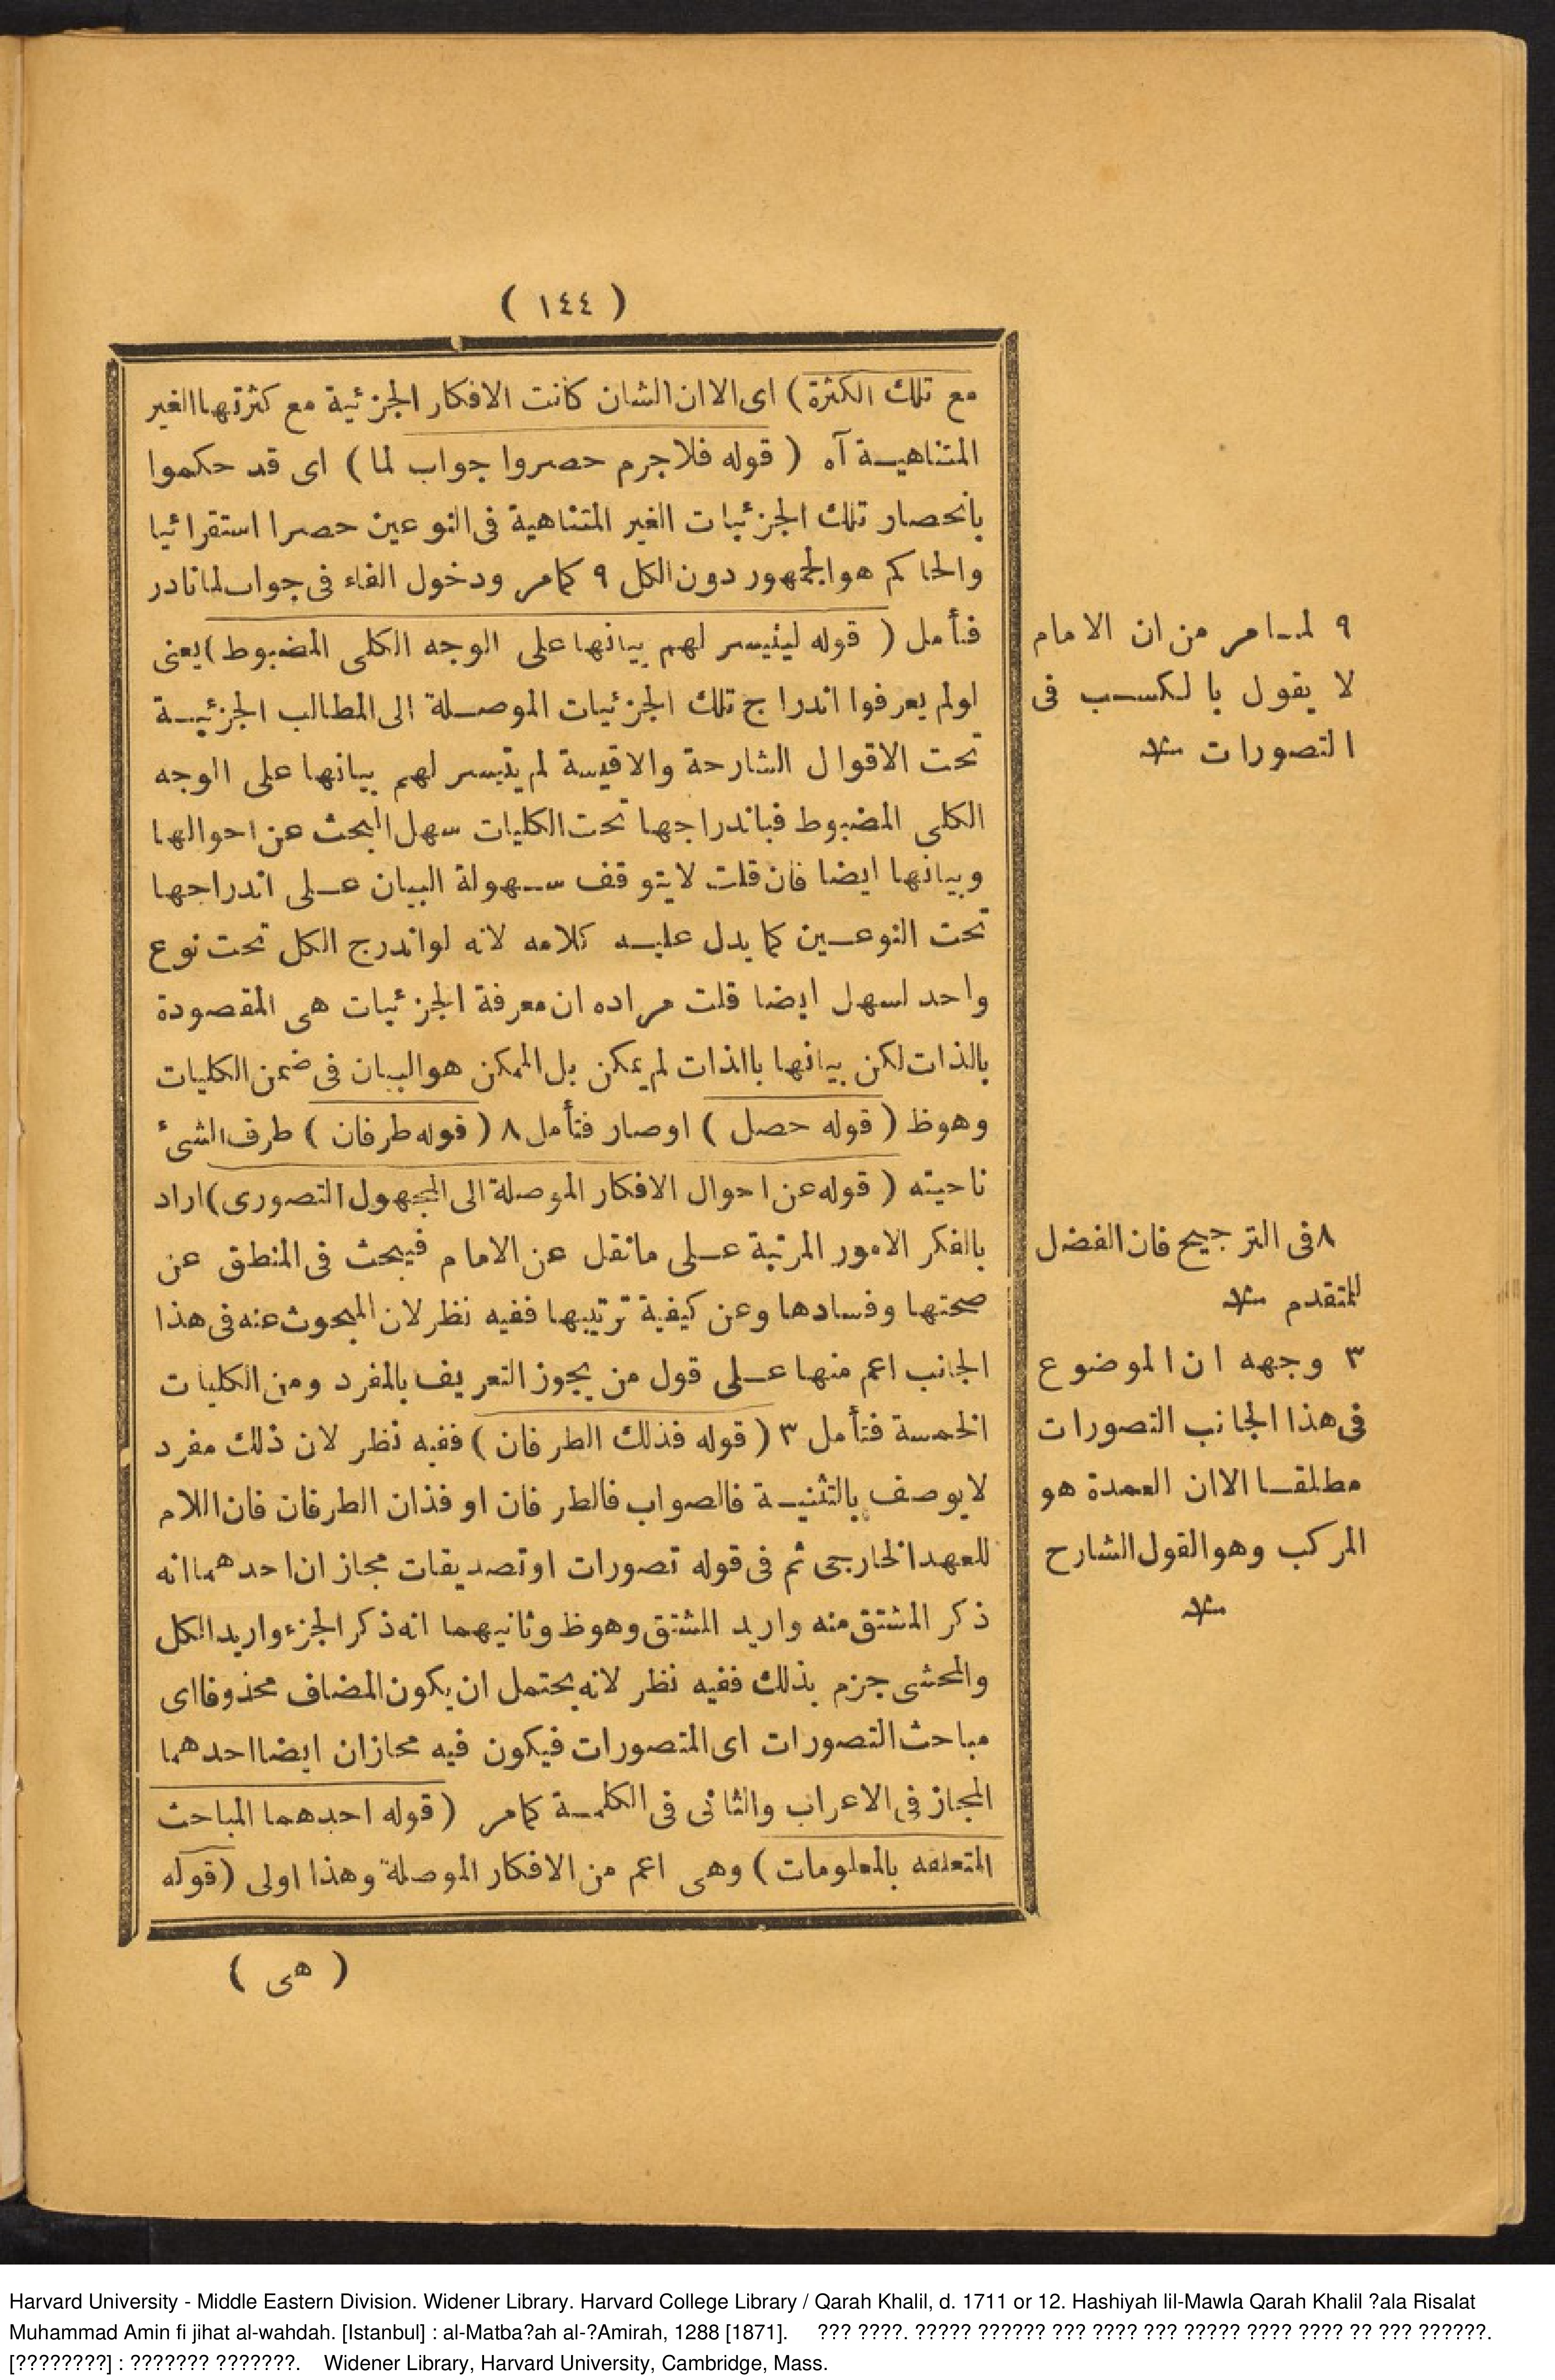 ( ١٤٤ )
مع تلك الكثرة) اى الا ان الشان كانت الافكار الجزئية مع كثرتها الغير
المتناهية آه ( قوله فلاجرم حصروا جواب لما ) اى قد حكموا
بانحصار تلك الجزئيات الغير المتناهية فى النوعين حصرا استقرائيا
والحاكم هو الجمهور دون الكل ٩ كمامر ودخول الفاء فى جواب لما نادر
فتأمل ( قوله ليتيسر لهم بيانها على الوجه الكلى المضبوط ) يعنى
او لم يعرفوا اندراج تلك الجزئيات الموصلة الى المطالب الجزئية
تحت الاقوال الشارحة والاقيسة لم يتيسر لهم بيانها على الوجه
الكلى المضبوط فباندراجها تحت الكليات سهل البحث عن احوالها
وبيانها ايضا فان قلت لايتوقف سهولة البيان على اندراجها
تحت النوعين كما يدل عليه كلامه لانه لو اندرج الكل تحت نوع
واحد لسهل ايضا قلت مراده ان معرفة الجزئيات هى المقصودة
بالذات لكن بيانها بالذات لم يمكن بل الممكن هو البيان فى ضمن الكليات
وهوظ ( قوله حصل ) اوصار فتأمل ٨ ( قوله طرفان ) طرف الشىء
ناحيته ( قوله عن احوال الافكار الموصلة الى المجهول التصورى ) اراد
بالفكر الامور المرتبة على مانقل عن الامام فيبحث فى المنطق عن
صحتها وفسادها وعن كيفية ترتيبها ففيه نظر لان المبحوث عنه فى هذا
الجانب اعم منها على قول من يجوز التعريف بالمفرد ومن الكليات
الخمسة فتأمل ٣ ( قوله فذلك الطرفان ) ففيه نظر لان ذلك مفرد
لايوصف بالتثنية فالصواب فالطرفان او فذان الطرفان فان اللام
للعهد الخارجى ثم فى قوله تصورات او تصديقات مجازان احدهما انه
ذكر المشتق منه واريد المشتق وهوظ وثانيهما انه ذكر الجزء واريد الكل
والمحشى جزم بذلك ففيه نظر لانه يحتمل ان يكون المضاف محذوفا اى
مباحث التصورات اى المتصورات فيكون فيه مجازان ايضا احدهما
المجاز فى الاعراب والثانى فى الكلمة كمامر ( قوله احدهما المباحث
المتعلقه بالمعلومات ) وهى اعم من الافكار الموصلة وهذا اولى ( قوله
( هى )
٩ لمامر من ان الامام
لا يقول بالكسب فى
التصورات منه
٨ فى الترجيح فان الفضل
للمتقدم منه
٣ وجهه ان الموضوع
فى هذا الجانب التصورات
مطلقا الا ان العمدة هو
المركب وهو القول الشارح
منه
Harvard University - Middle Eastern Division. Widener Library. Harvard College Library / Qarah Khalil, d. 1711 or 12. Hashiyah lil-Mawla Qarah Khalil ?ala Risalat
Muhammad Amin fi jihat al-wahdah. [Istanbul] : al-Matba?ah al-?Amirah, 1288 [1871]. ??? ????. ????? ?????? ??? ???? ??? ????? ???? ???? ?? ??? ??????.
[????????] : ??????? ???????. Widener Library, Harvard University, Cambridge, Mass.